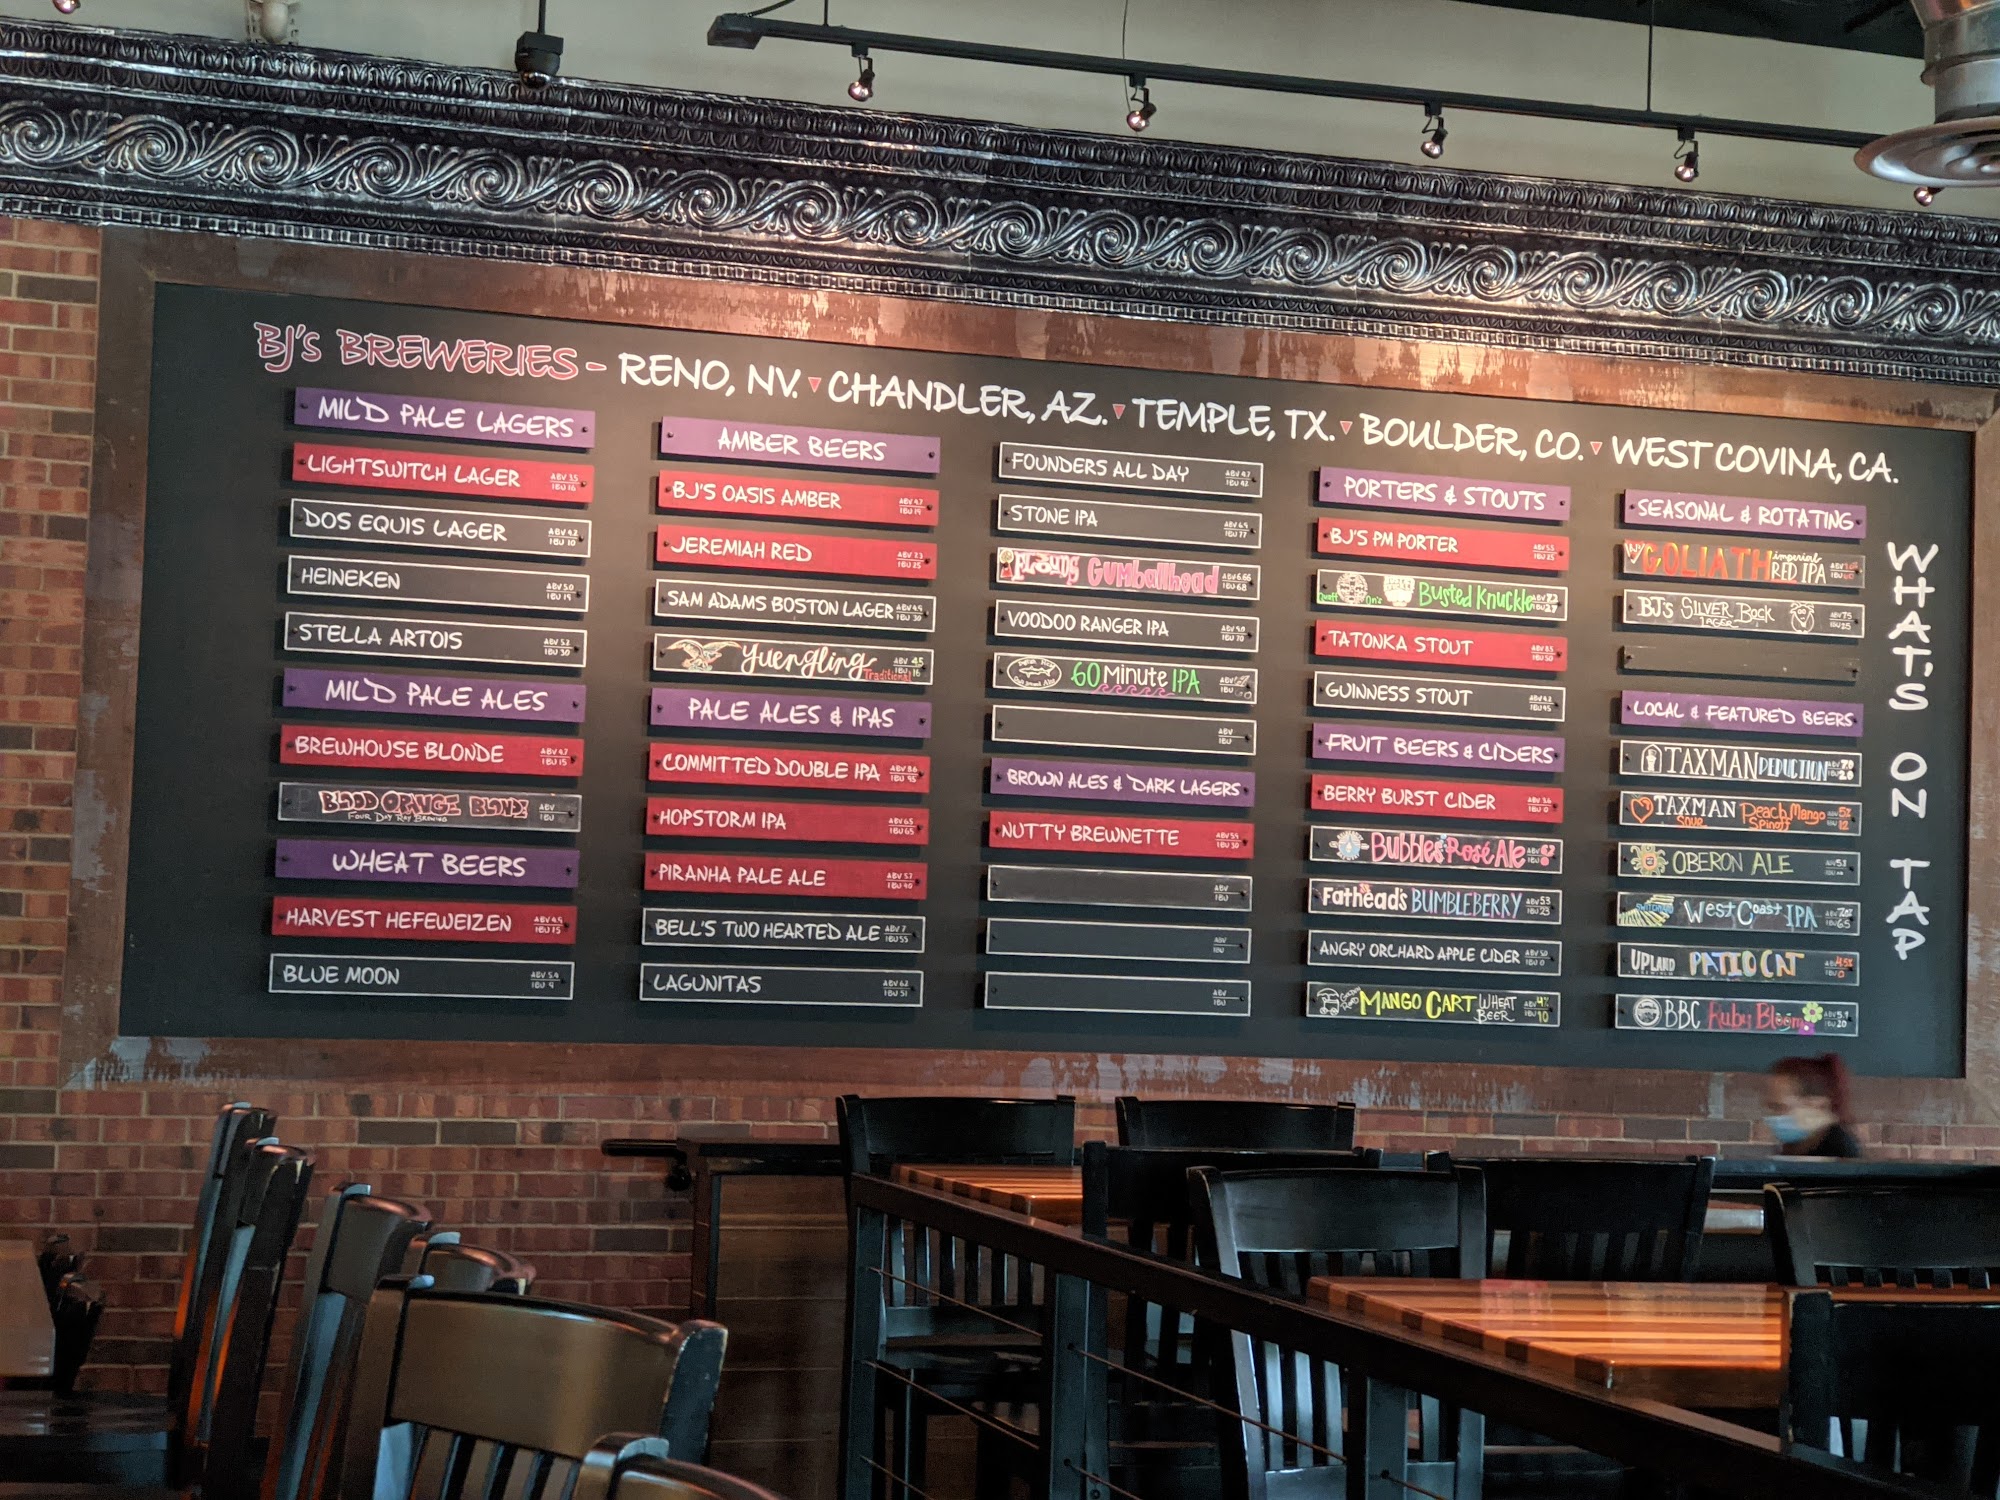 BJ'S BREWERIES - RENO, NV. CHANDLER, AZ. TEMPLE, TX. BOULDER, CO. WEST COVINA, CA.
WHAT'S ON TAP
MILD PALE LAGERS
LIGHTSWITCH LAGER ABV 3.5 IBU 16
DOS EQUIS LAGER ABV 4.2 IBU 10
HEINEKEN ABV 5.0 IBU 19
STELLA ARTOIS ABV 5.2 IBU 30
MILD PALE ALES
BREWHOUSE BLONDE ABV 4.7 IBU 15
BLOOD ORANGE BLONDE ABV IBU
FOUR DAY RAY BREWING
WHEAT BEERS
HARVEST HEFEWEIZEN ABV 4.9 IBU 15
BLUE MOON ABV 5.4 IBU 9
AMBER BEERS
BJ'S OASIS AMBER ABV 4.7 IBU 19
JEREMIAH RED ABV 7.3 IBU 25
SAM ADAMS BOSTON LAGER ABV 4.9 IBU 30
Yuengling Traditional ABV 4.5 IBU 16
PALE ALES & IPAS
COMMITTED DOUBLE IPA ABV 8.6 IBU 95
HOPSTORM IPA ABV 6.5 IBU 65
PIRANHA PALE ALE ABV 5.7 IBU 40
BELL'S TWO HEARTED ALE ABV 7 IBU 55
LAGUNITAS ABV 6.2 IBU 51
FOUNDERS ALL DAY ABV 4.7 IBU 42
STONE IPA ABV 6.9 IBU 77
3 FLOYDS GUMballhead ABV 6.66 IBU 68
VOODOO RANGER IPA ABV 5.0 IBU 70
60 Minute IPA ABV IBU
ABV IBU
BROWN ALES & DARK LAGERS
NUTTY BREWNETTE ABV 5.9 IBU 30
ABV IBU
ABV IBU
ABV IBU
PORTERS & STOUTS
BJ'S PM PORTER ABV 5.5 IBU 25
Quaff On's Busted Knuckle ABV 7.2 IBU 27
TATONKA STOUT ABV 8.5 IBU 50
GUINNESS STOUT ABV 4.2 IBU 45
FRUIT BEERS & CIDERS
BERRY BURST CIDER ABV 3.6 IBU 0
Bubbles Rosé Ale ABV 6.2 IBU
Fathead's BUMBLEBERRY ABV 5.3 IBU 23
ANGRY ORCHARD APPLE CIDER ABV 5.0 IBU 0
GOLDEN ROAD MANGO CART WHEAT BEER ABV 4% IBU 10
SEASONAL & ROTATING
BJ'S GOLIATH imperial RED IPA ABV IBU
BJ'S SILVER BOCK LAGER ABV 7.5 IBU 25
LOCAL & FEATURED BEERS
TAXMAN DEDUCTION ABV 7.0 IBU 20
TAXMAN SOUR Peach Mango Spinoff ABV 5% IBU 12
OBERON ALE ABV 5.8 IBU
SWITCHYARD West Coast IPA ABV 7.0% IBU 65
UPLAND PATIO CAT ABV 4.5% IBU 0
BBC Ruby Bloom ABV 5.9 IBU 20